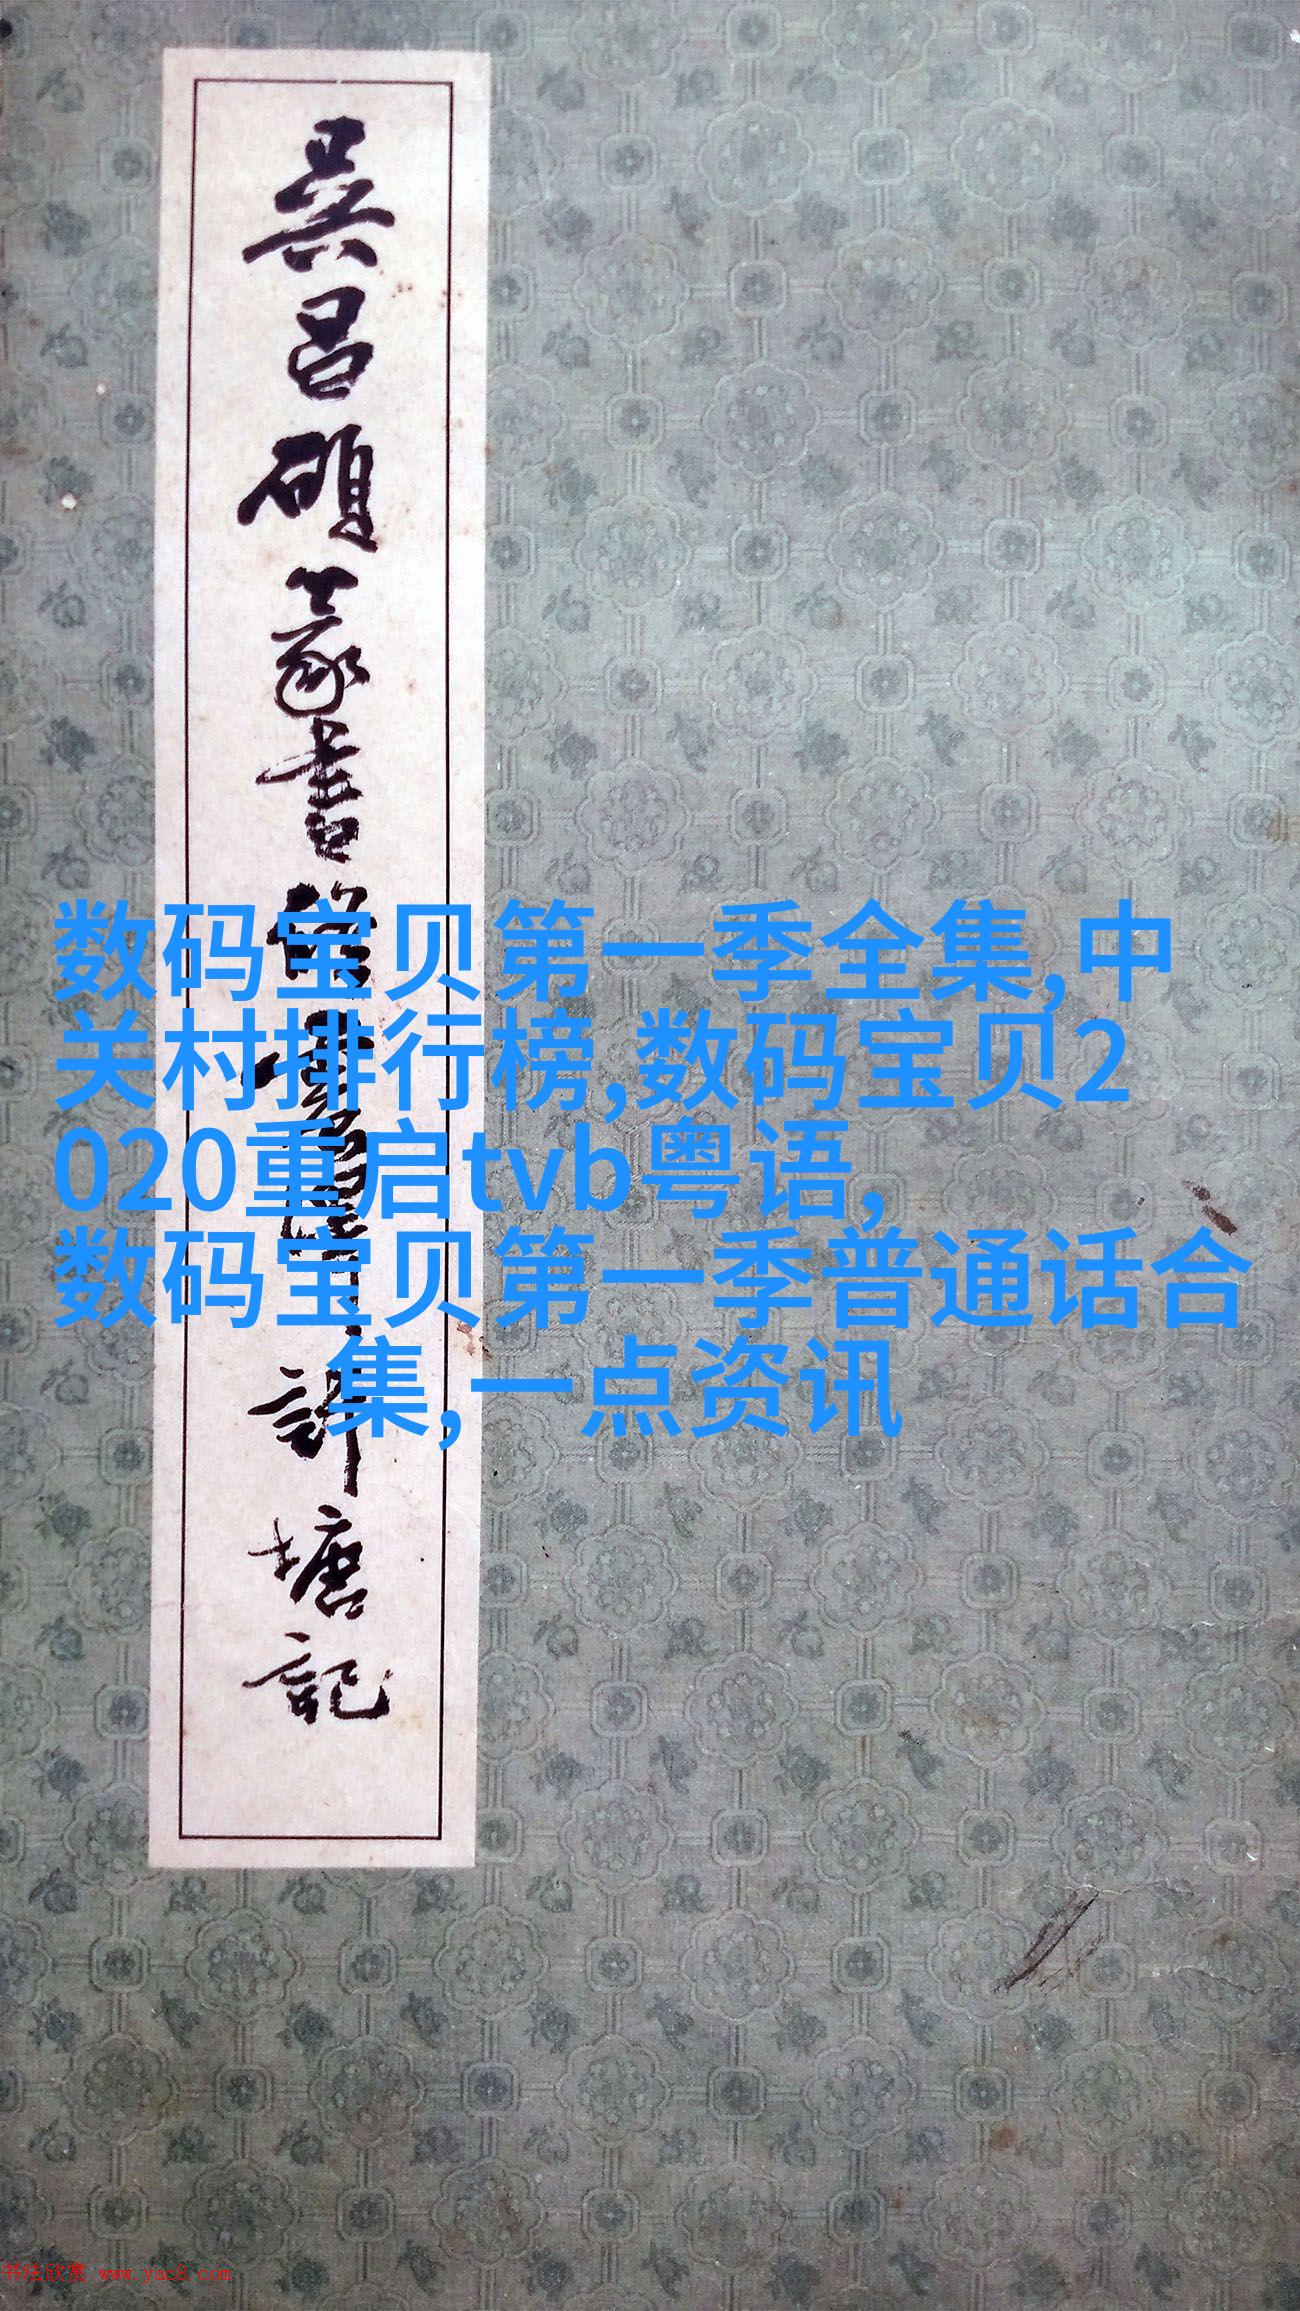 吴昌硕篆书修震泽
许塘记
数码宝贝第一季全集,中
关村排行榜,数码宝贝2
020重启tvb粤语,
数码宝贝第一季普通话合
集,一点资讯
书法欣赏 www.yac8.com